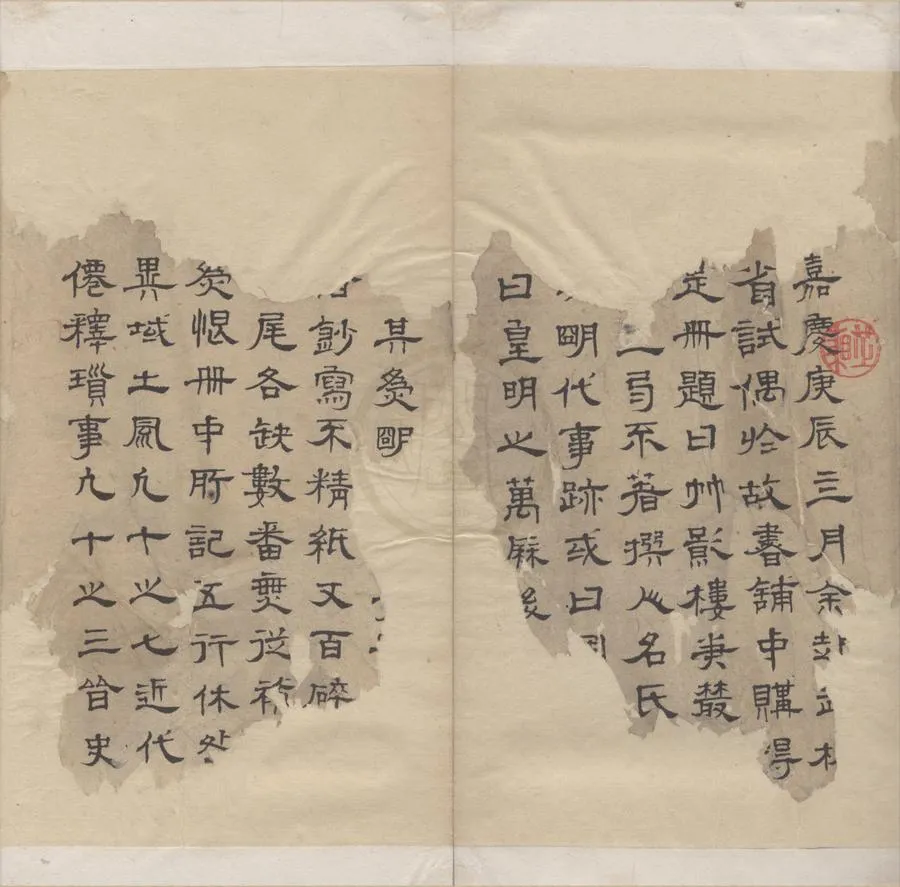 嘉慶庚辰三月余赴
省試偶於故書舖中購得
是册題曰竹影樓叢
一弓不著撰人名氏
明代事跡或曰國
曰皇明之萬厤
其為明
鈔寫不精紙又百碎
尾各缺數番無從
恨册中所記五行休咎
異域土風凡十之七近代
僊釋瑣事凡十之三皆史